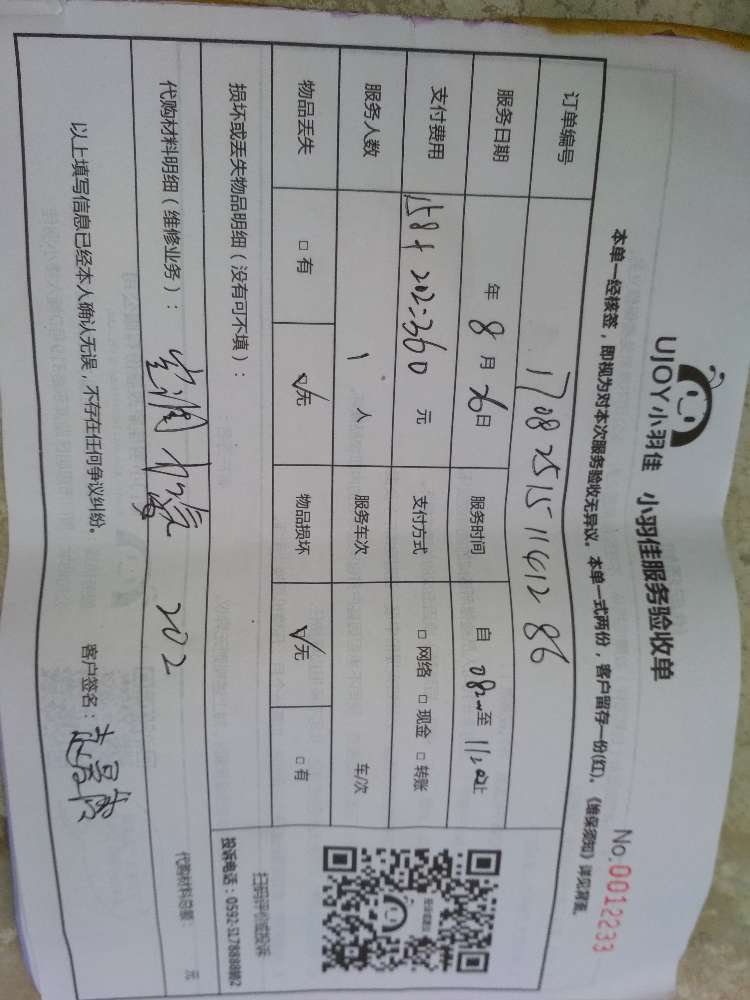 UJOY小羽佳 小羽佳服务验收单
No.0012233
本单一经核签，即视为对本次服务验收无异议。本单一式两份，客户留存一份(红)。《维保须知》详见背面
订单编号 17082515116128 6
服务日期 年 8 月 26 日 服务时间 自 082 至 11:00 止
支付费用 158+202=360 元 支付方式 □ 网络 □ 现金 □ 转账
服务人数 1 人 服务车次 车/次
物品丢失 □ 有 ☑无 物品损坏 ☑无 □ 有
损坏或丢失物品明细（没有可不填）：
扫码评价或投诉
投诉电话：0592-5178888转2
代购材料明细（维修业务）： 空调 加氟 202 代购材料总额： 元
以上填写信息已经本人确认无误，不存在任何争议纠纷。 客户签名：